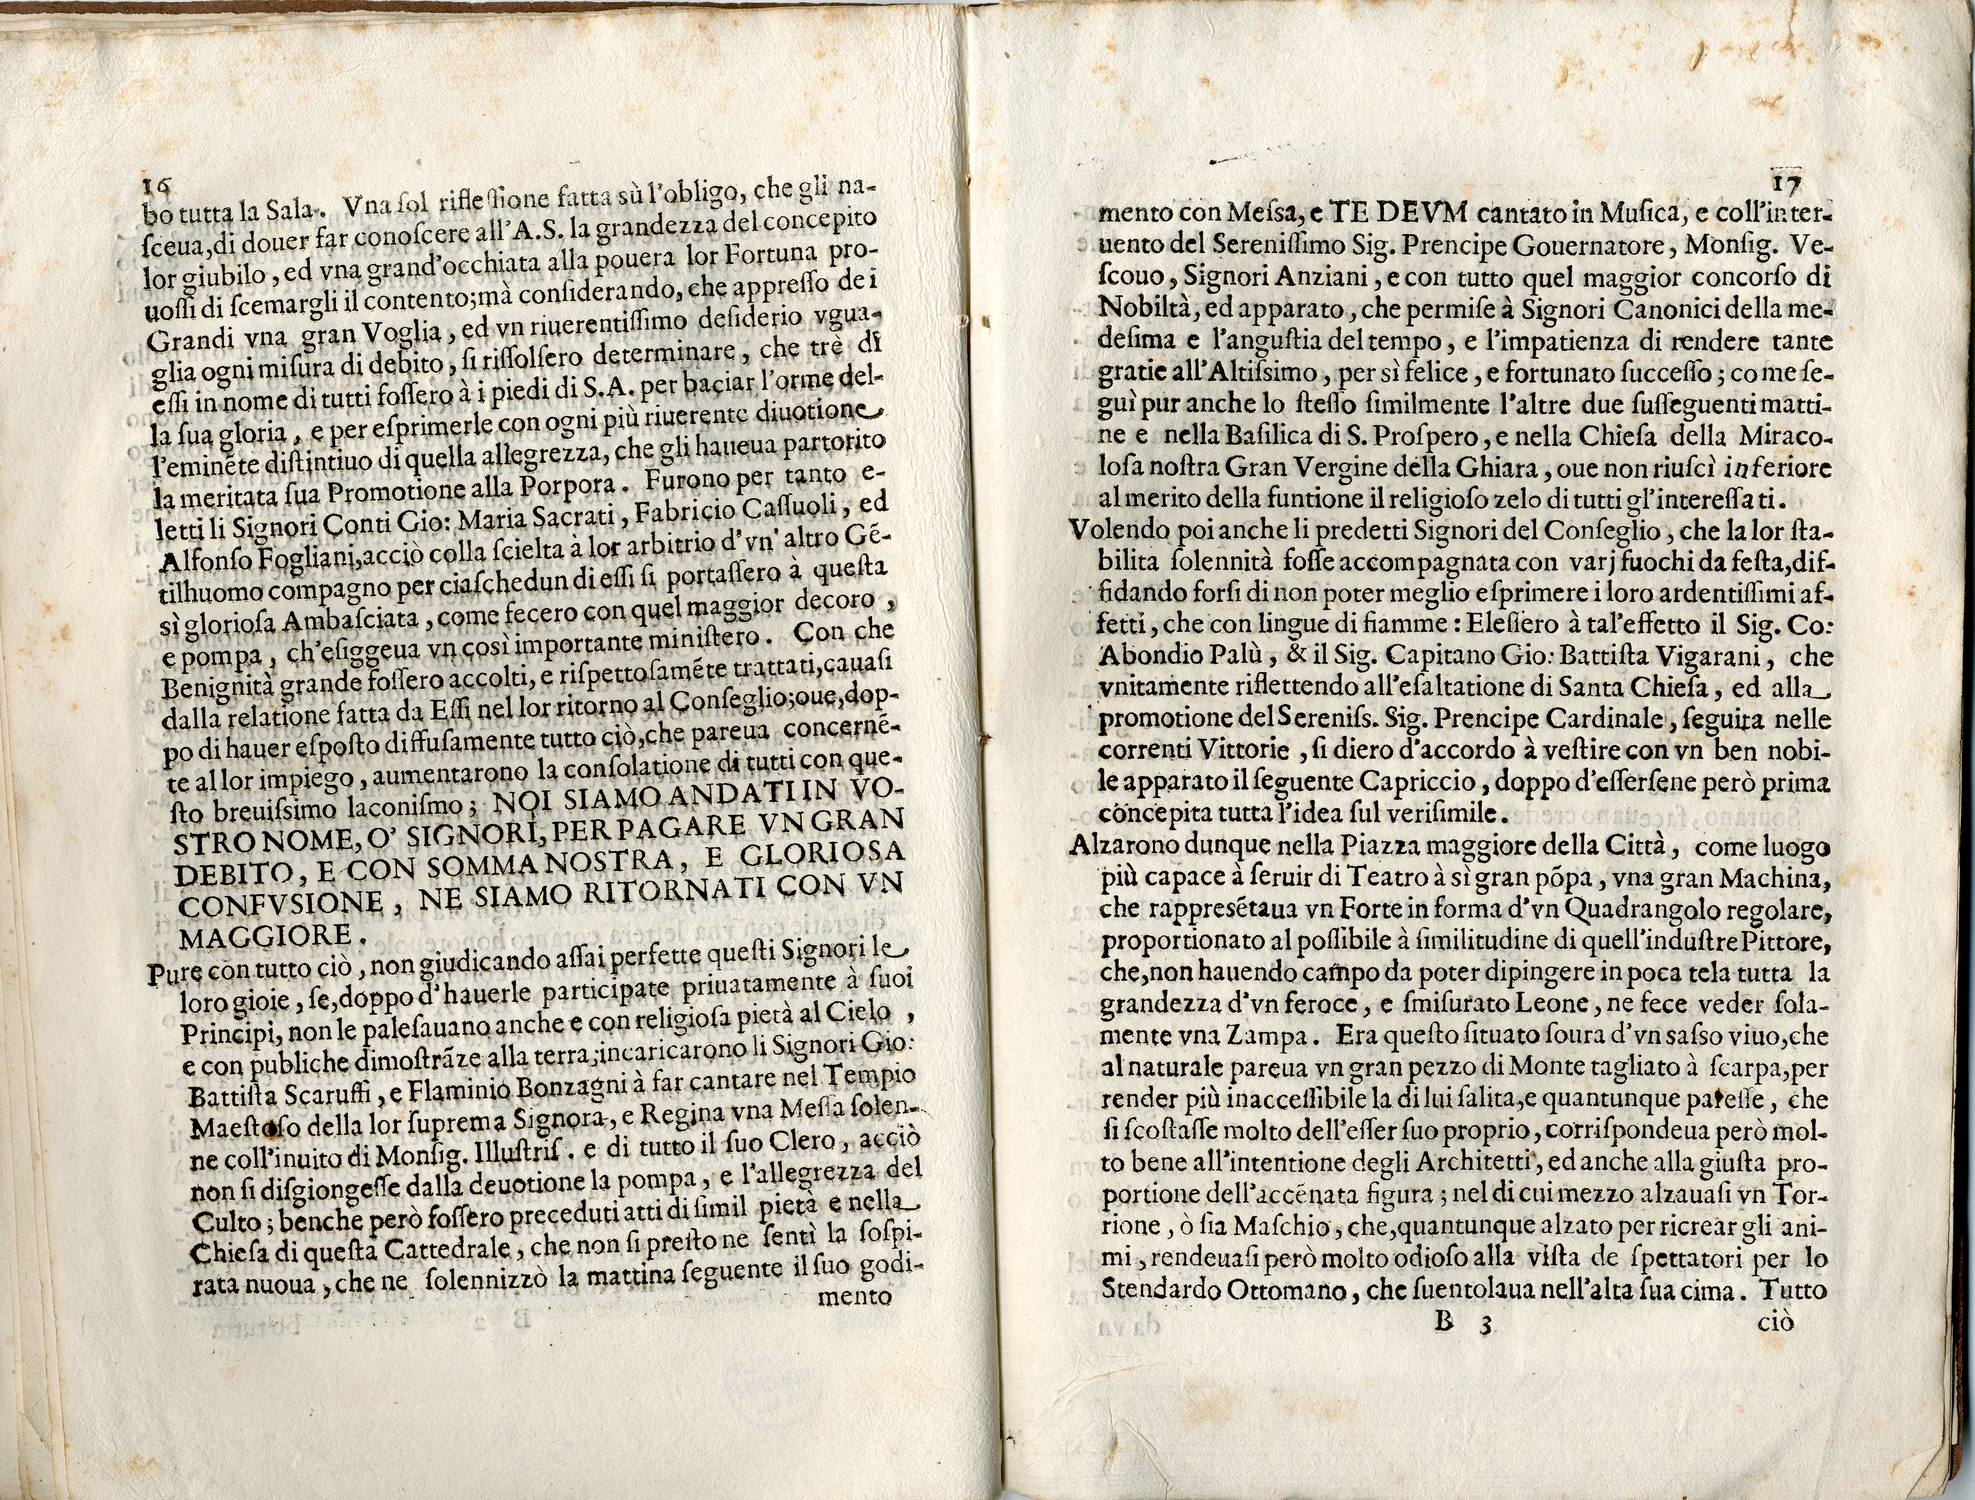 16
bo tutta la Sala. Vna ſol rifleſſione fatta sù l'obligo, che gli na-
ſceua, di douer far conoſcere all'A.S. la grandezza del concepito
lor giubilo, ed vna grand'occhiata alla pouera lor Fortuna pro-
uoſſi di ſcemargli il contento; mà conſiderando, che appreſſo dei
Grandi vna gran Voglia, ed vn riuerentiſſimo deſiderio vgua-
glia ogni miſura di debito, ſi riſſolſero determinare, che trè dì
eſſi in nome di tutti foſſero à i piedi di S.A. per baciar l'orme del-
la ſua gloria, e per eſprimerle con ogni più riuerente diuotione
l'eminẽte diſtintiuo di quella allegrezza, che gli haueua partorito
la meritata ſua Promotione alla Porpora. Furono per tanto e-
letti li Signori Conti Gio: Maria Sacrati, Fabricio Caſſuoli, ed
Alfonſo Fogliani, acciò colla ſcielta à lor arbitrio d'vn' altro Gẽ-
tilhuomo compagno per ciaſchedun di eſſi ſi portaſſero à queſta
sì glorioſa Ambaſciata, come fecero con quel maggior decoro,
e pompa, ch'eſiggeua vn così importante miniſtero. Con che
Benignità grande foſſero accolti, e riſpettoſamẽte trattati, cauaſi
dalla relatione fatta da Eſſi nel lor ritorno al Conſeglio; oue, dop-
po di hauer eſpoſto diffuſamente tutto ciò, che pareua concernẽ-
te al lor impiego, aumentarono la conſolatione di tutti con que-
ſto breuiſsimo laconiſmo; NOI SIAMO ANDATI IN VO-
STRO NOME, O' SIGNORI, PER PAGARE VN GRAN
DEBITO, E CON SOMMA NOSTRA, E GLORIOSA
CONFVSIONE, NE SIAMO RITORNATI CON VN
MAGGIORE.
Pure con tutto ciò, non giudicando aſſai perfette queſti Signori le
loro gioie, ſe, doppo d'hauerle participate priuatamente à ſuoi
Principi, non le paleſauano anche e con religioſa pietà al Cielo,
e con publiche dimoſtrãze alla terra; incaricarono li Signori Gio:
Battiſta Scaruffi, e Flaminio Bonzagni à far cantare nel Tempio
Maeſtoſo della lor ſuprema Signora, e Regina vna Meſſa ſolen-
ne coll'inuito di Monſig. Illuſtriſ. e di tutto il ſuo Clero, acciò
non ſi diſgiongeſſe dalla deuotione la pompa, e l'allegrezza del
Culto; benche però foſſero preceduti atti di ſimil pietà e nella
Chieſa di queſta Cattedrale, che non ſi preſto ne ſentì la ſoſpi-
rata nuoua, che ne ſolennizzò la mattina ſeguente il ſuo godi-
mento
17
mento con Meſsa, e TE DEVM cantato in Muſica, e coll'inter-
uento del Sereniſſimo Sig. Prencipe Gouernatore, Monſig. Ve-
ſcouo, Signori Anziani, e con tutto quel maggior concorſo di
Nobiltà, ed apparato, che permiſe à Signori Canonici della me-
deſima e l'anguſtia del tempo, e l'impatienza di rendere tante
gratie all'Altiſsimo, per sì felice, e fortunato ſucceſſo; come ſe-
guì pur anche lo ſteſſo ſimilmente l'altre due ſuſſeguenti matti-
ne e nella Baſilica di S. Proſpero, e nella Chieſa della Miraco-
loſa noſtra Gran Vergine della Ghiara, oue non riuſcì inferiore
al merito della funtione il religioſo zelo di tutti gl'intereſſati.
Volendo poi anche li predetti Signori del Conſeglio, che la lor ſta-
bilita ſolennità foſſe accompagnata con varj fuochi da feſta, dif-
fidando forſi di non poter meglio eſprimere i loro ardentiſſimi af-
fetti, che con lingue di fiamme: Eleſiero à tal'effetto il Sig. Co:
Abondio Palù, & il Sig. Capitano Gio: Battiſta Vigarani, che
vnitamente riflettendo all'eſaltatione di Santa Chieſa, ed alla
promotione del Sereniſs. Sig. Prencipe Cardinale, ſeguita nelle
correnti Vittorie, ſi diero d'accordo à veſtire con vn ben nobi-
le apparato il ſeguente Capriccio, doppo d'eſſerſene però prima
concepita tutta l'idea ſul veriſimile.
Alzarono dunque nella Piazza maggiore della Città, come luogo
più capace à ſeruir di Teatro à sì gran põpa, vna gran Machina,
che rappresẽtaua vn Forte in forma d'vn Quadrangolo regolare,
proportionato al poſſibile à ſimilitudine di quell'induſtre Pittore,
che, non hauendo campo da poter dipingere in poca tela tutta la
grandezza d'vn feroce, e ſmiſurato Leone, ne fece veder ſola-
mente vna Zampa. Era queſto ſituato ſoura d'vn ſaſso viuo, che
al naturale pareua vn gran pezzo di Monte tagliato à ſcarpa, per
render più inacceſſibile la di lui ſalita, e quantunque pareſſe, che
ſi ſcoſtaſſe molto dell'eſſer ſuo proprio, corriſpondeua però mol-
to bene all'intentione degli Architetti, ed anche alla giuſta pro-
portione dell'accẽnata figura; nel di cui mezzo alzauaſi vn Tor-
rione, ò ſia Maſchio, che, quantunque alzato per ricrear gli ani-
mi, rendeuaſi però molto odioſo alla viſta de ſpettatori per lo
Stendardo Ottomano, che ſuentolaua nell'alta ſua cima. Tutto
B 3 ciò